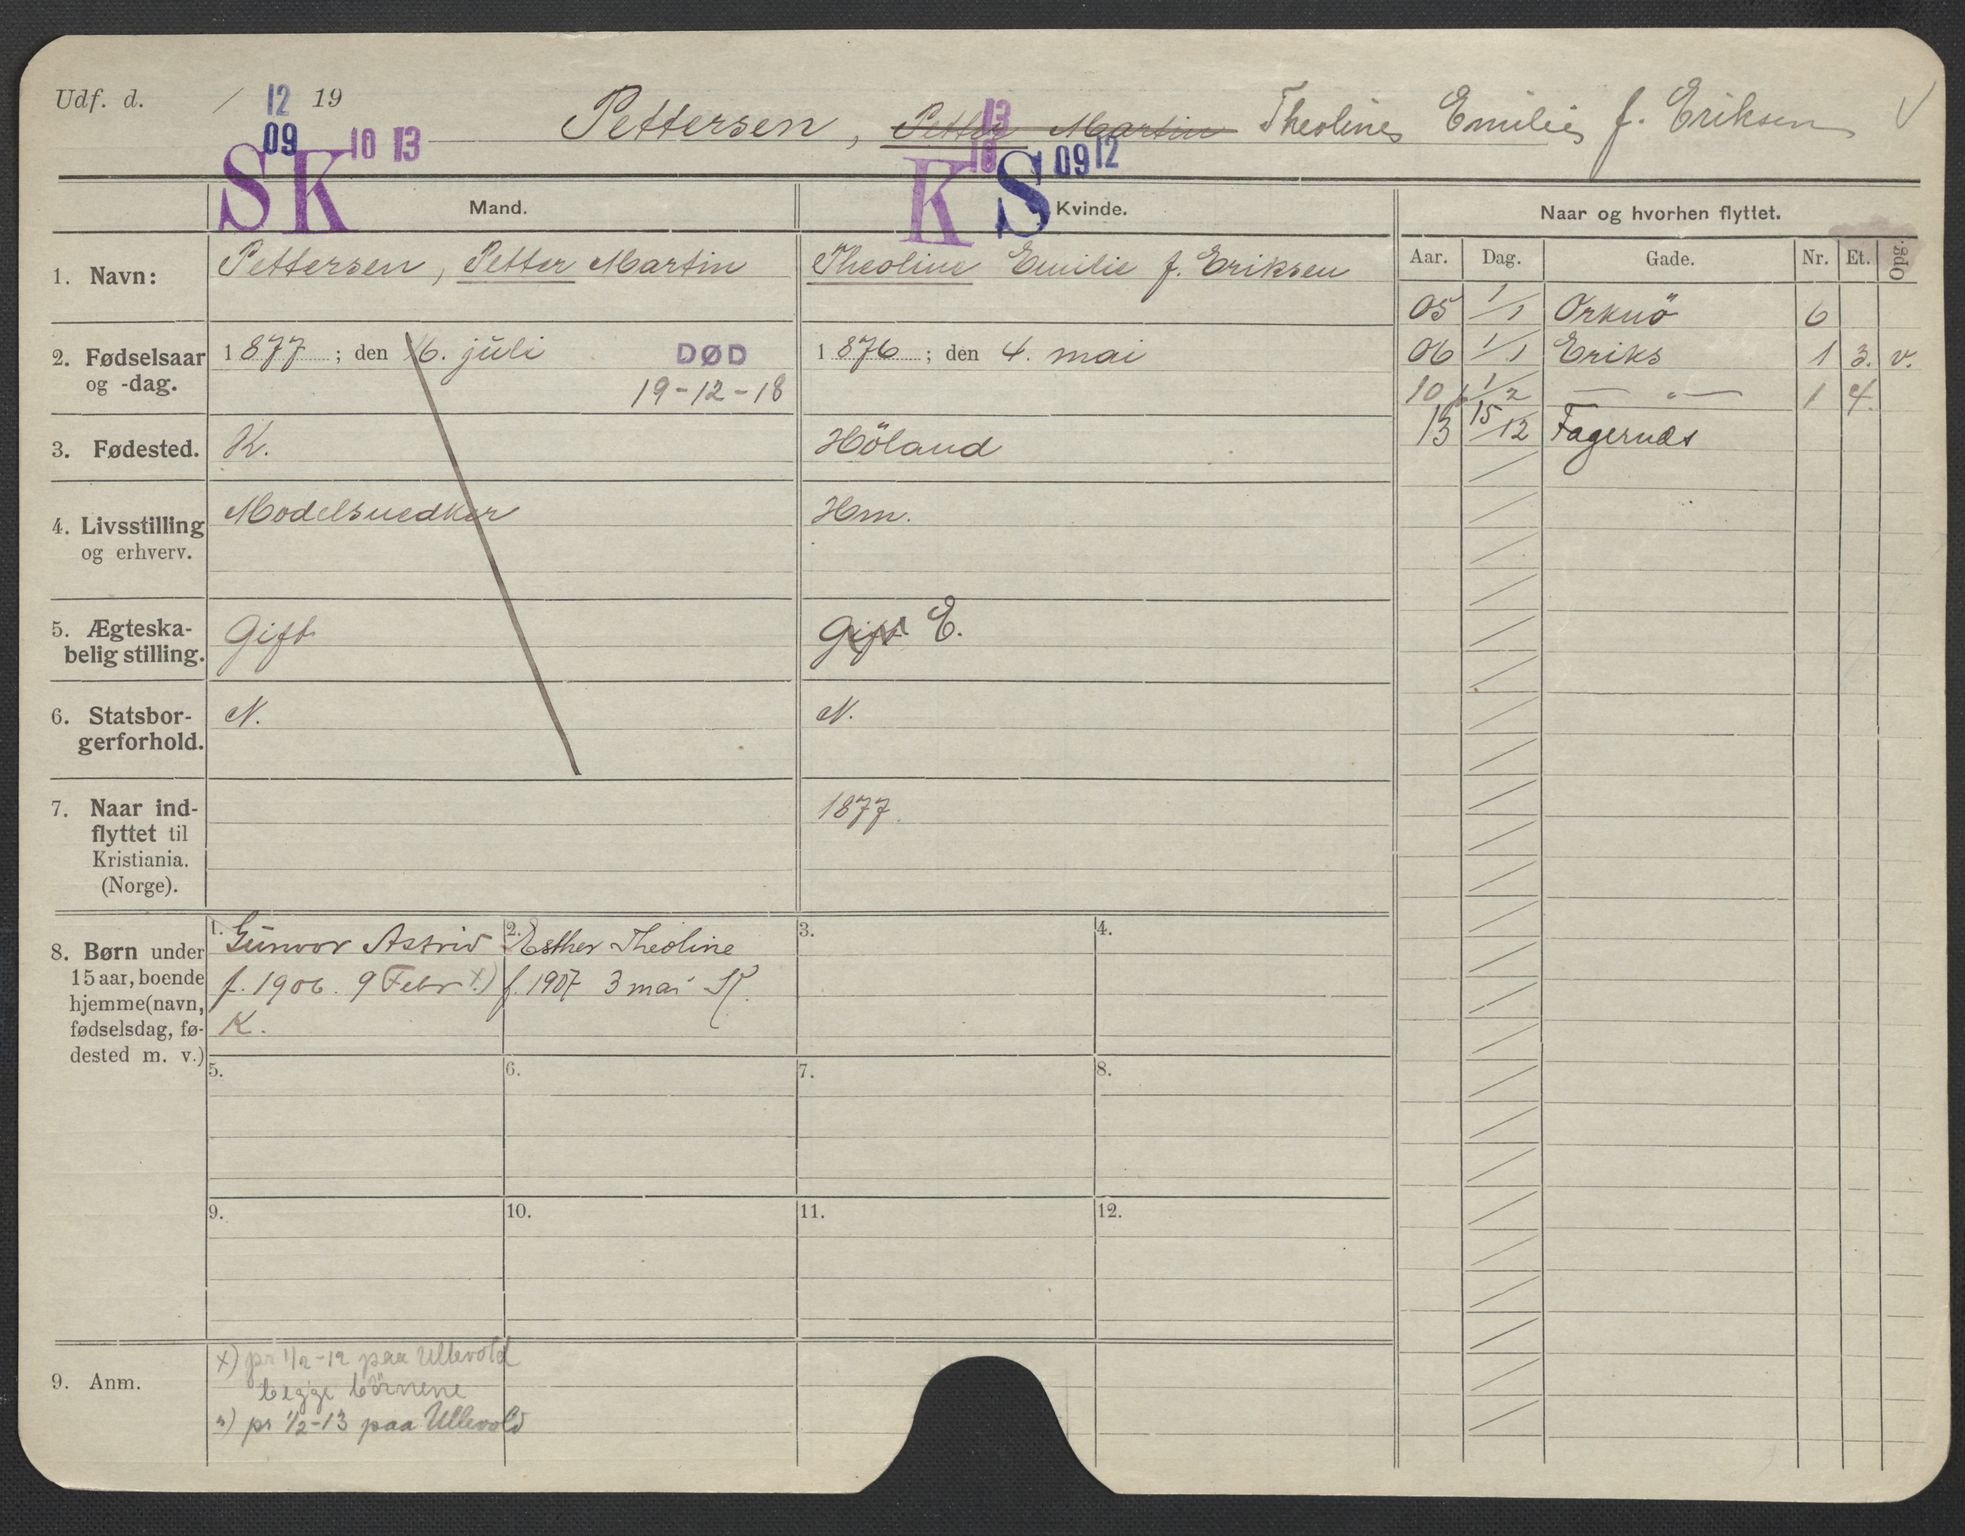 Udf. d. / 19
12
09 10 13
SK
Pettersen, Petter Martin Theolines Emilies f. Eriksen V
13
18 09 12
K S
Mand. Kvinde. Naar og hvorhen flyttet.
Aar. Dag. Gade. Nr. Et. Opg.
1. Navn: Pettersen, Petter Martin Theoline Emilie f. Eriksen
05 1/1 Orknö 6
2. Fødselsaar og -dag. 1877; den 16. juli DØD 1876; den 4. mai
19-12-18
06 1/1 Eriks 1 3. v.
10 1/2 — " — 1 4.
13 15/12 Fagernæs
3. Fødested. K. Höland
4. Livsstilling og erhverv. Modelsnedker Hm.
5. Ægteska-
belig stilling. Gift Gift E.
6. Statsbor-
gerforhold. N. N.
7. Naar ind-
flyttet til
Kristiania.
(Norge).
1877.
8. Børn under
15 aar, boende
hjemme (navn,
fødselsdag, fø-
dested m. v.)
1. Gunvor Astrid
f. 1906. 9 Febr x)
K.
2. Esther Theoline
f. 1907 3 mai K.
3.
4.
5.
6.
7.
8.
9.
10.
11.
12.
9. Anm.
x) pr 1/2-12 paa Ullevold
begge börnene
") pr 1/2-13 paa Ullevold